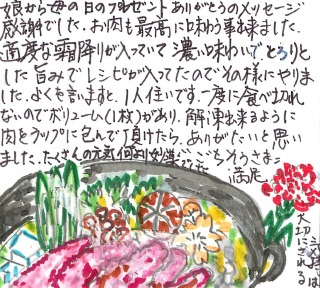 娘から母の日のプレゼントありがとうのメッセージ
感謝でした。お肉も最高に味わう事出来ました。
適度な霜降りが入っていて濃い味わいでとろりと
した旨みでレシピが入ってたのでその様にやりま
した。よくを言いますと、1人住いです。一度に食べ切れ
ないのでボリューム(1枚)があり、解凍出来るように
お肉をラップに包んで頂けたら、ありがたいと思い
ました。たくさんの元気
ごちそうさま。
満足
大切にされる